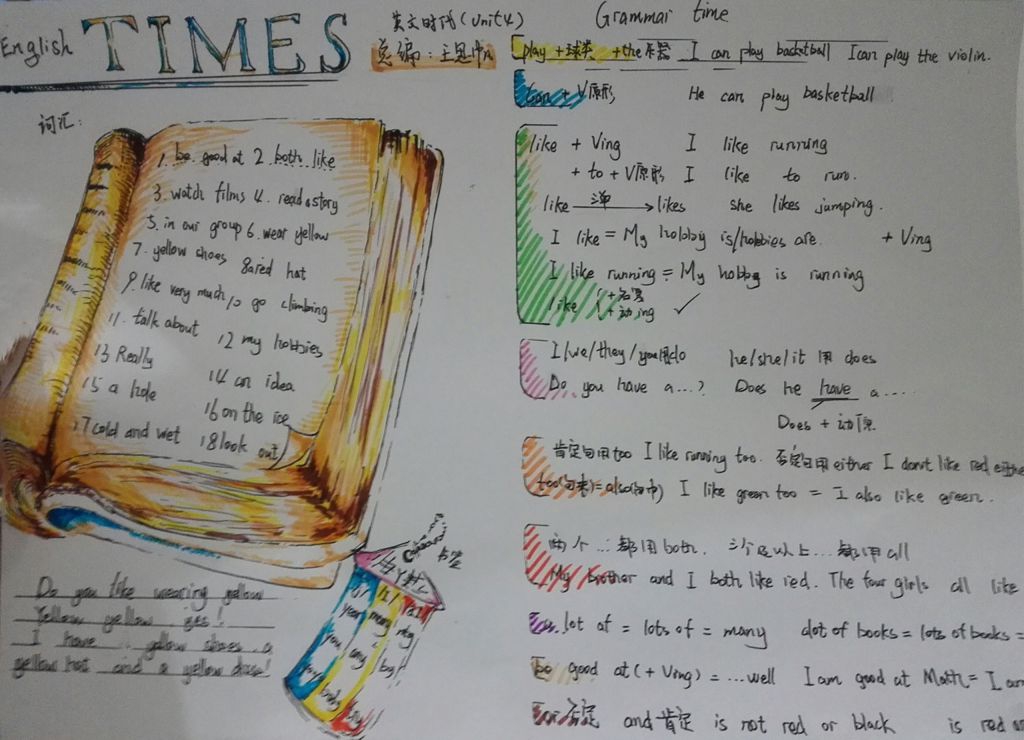 English TIMES
英文时代(Unit4)
总编:王思
词汇:
1. be good at 2. both like
3. watch films 4. read a story
5. in our group 6. wear yellow
7. yellow shoes 8 a red hat
9. like very much 10 go climbing
11. talk about 12 my hobbies
13 Really 14 an idea
15 a hole 16 on the ice
17 cold and wet 18 look out
Do you like wearing yellow
Yellow yellow yes!
I have yellow shoes a
yellow hat and a yellow dress!
Grammar time
play + 球类 + the 乐器 I can play basketball I can play the violin.
can + V原形 He can play basketball
like + Ving I like running
+ to + V原形 I like to run.
like 三单 → likes she likes jumping.
I like = My hobby is/hobbies are. + Ving
I like running = My hobby is running
like + 名复 ✓
+ 动ing
I/we/they/you用do he/she/it 用 does
Do you have a...? Does he have a.....
Does + 动原
肯定句用too I like running too. 否定句用either I don't like red either
too(句末)=also(句中) I like green too = I also like green.
两个...都用both. 三个及以上...都用all
My brother and I both like red. The four girls all like
a lot of = lots of = many a lot of books = lots of books =
be good at (+ Ving) = ...well I am good at Math = I am
or 否定 and 肯定 is not red or black is red